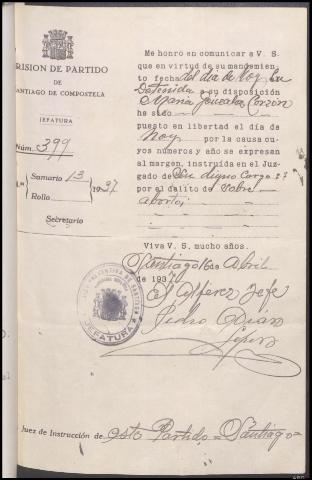 RISION DE PARTIDO
DE
SANTIAGO DE COMPOSTELA
JEFATURA
Núm. 399
Sumario 13
Rollo
1937
Secretario
Me honro en comunicar a V. S.
que en virtud de su mandamien-
to fecha del día de hoy, la
Detenida a su disposición
Maria
ha sido
puesto en libertad el día de
hoy por la causa cu-
yos números y año se expresan
al margen, instruída en el Juz-
gado de Su digno Cargo
por el delito de sobre
aborto,
Viva V. S. mucho años.
Santiago 16 de Abril
de 1937
El Alferez Jefe
Pedro
JEFATURA
Juez de Instrucción de este Partido = Santiago =